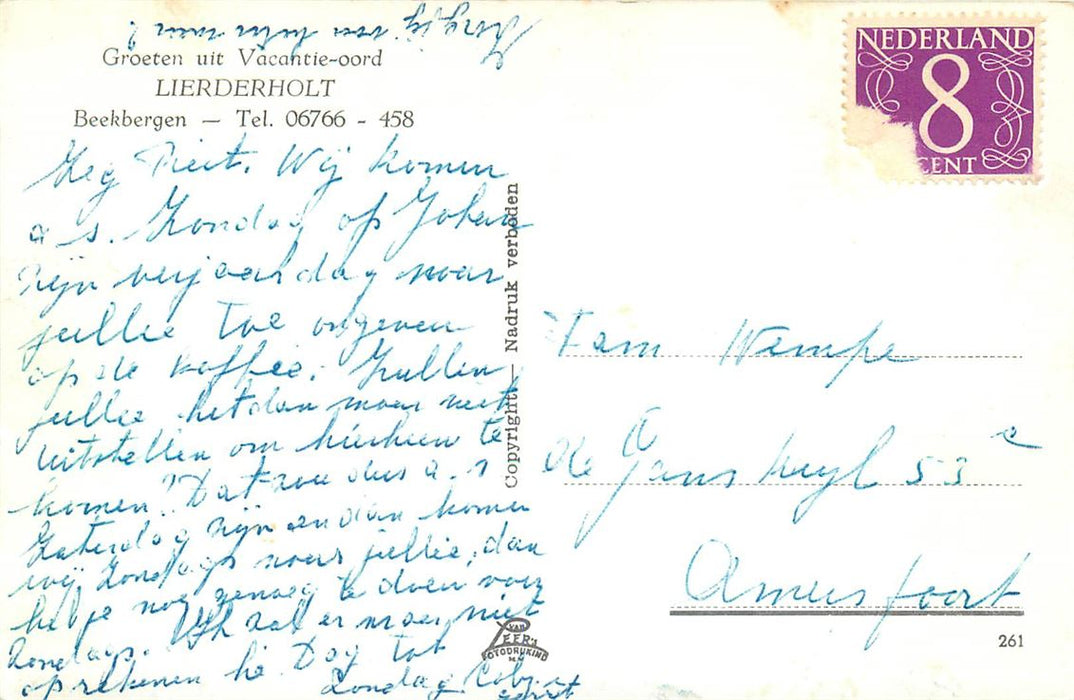 Groeten uit Vacantie-oord
LIERDERHOLT
Beekbergen — Tel. 06766 - 458
Zeg Piet. Wij komen
a s. Zondag op Johan
zijn verjaardag naar
jullie toe ongeveer
op de koffie. Zullen
jullie het dan maar niet
uitstellen om hierheen te
komen? Dat zou dus a. s
Zaterdag zijn en dan komen
wij Zondags naar jullie, dan
heb je nog genoeg te doen voor
Zondags. Ik zal er maar niet
op rekenen hè. Dag tot
Zondag Coby
Gerrit
van hem mee?
Copyright — Nadruk verboden
VAN LEER's
FOTODRUKIND
N.V.
NEDERLAND
8
CENT
Fam Wempe
de Ganskuyl 53 c
Amersfoort
261